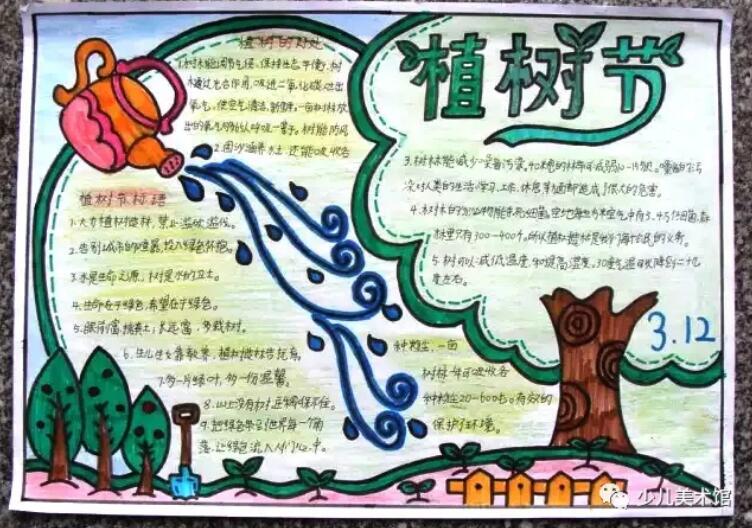 植树节
植树的好处
1.树木能调节气候,保持生态平衡,树
木通过光合作用,吸进二氧化碳,吐出
氧气,使空气清洁、新鲜。一亩树林放
出的氧气够65人呼吸一辈子。树能防风
2.固沙涵养水土,还能吸收各
种粉尘,一亩
树林一年可吸收各
种粉尘20-600吨。有效的
保护住环境。
3.树林能减少噪音污染。40米宽的林带可减弱10-15分贝。噪音的污
染对人类的生活、学习、工作、休息等方面都造成了很大的危害。
4.树木的分泌物能杀死细菌。空地每立方米空气中有3、4万个细菌,森
林里只有300-400个。所以植树造林是我们每个公民的义务。
5.树可以减低温度,和提高湿度。
度左右。
3.12
植树节标语
1.大力植树造林,禁止滥砍滥伐。
2.告别城市的喧嚣,投入绿色怀抱。
3.水是生命之源,树是水的卫士。
4.生命在于绿色,希望在于绿色。
5.眼前富,挑黄土;长远富,多栽树。
6.生儿生女靠教养,植树造林告托育。
7.多一片绿叶,多一份温馨。
8.山上没有树,
9.把绿色带到世界每一个角
落,让绿色流入人们心中。
少儿美术馆